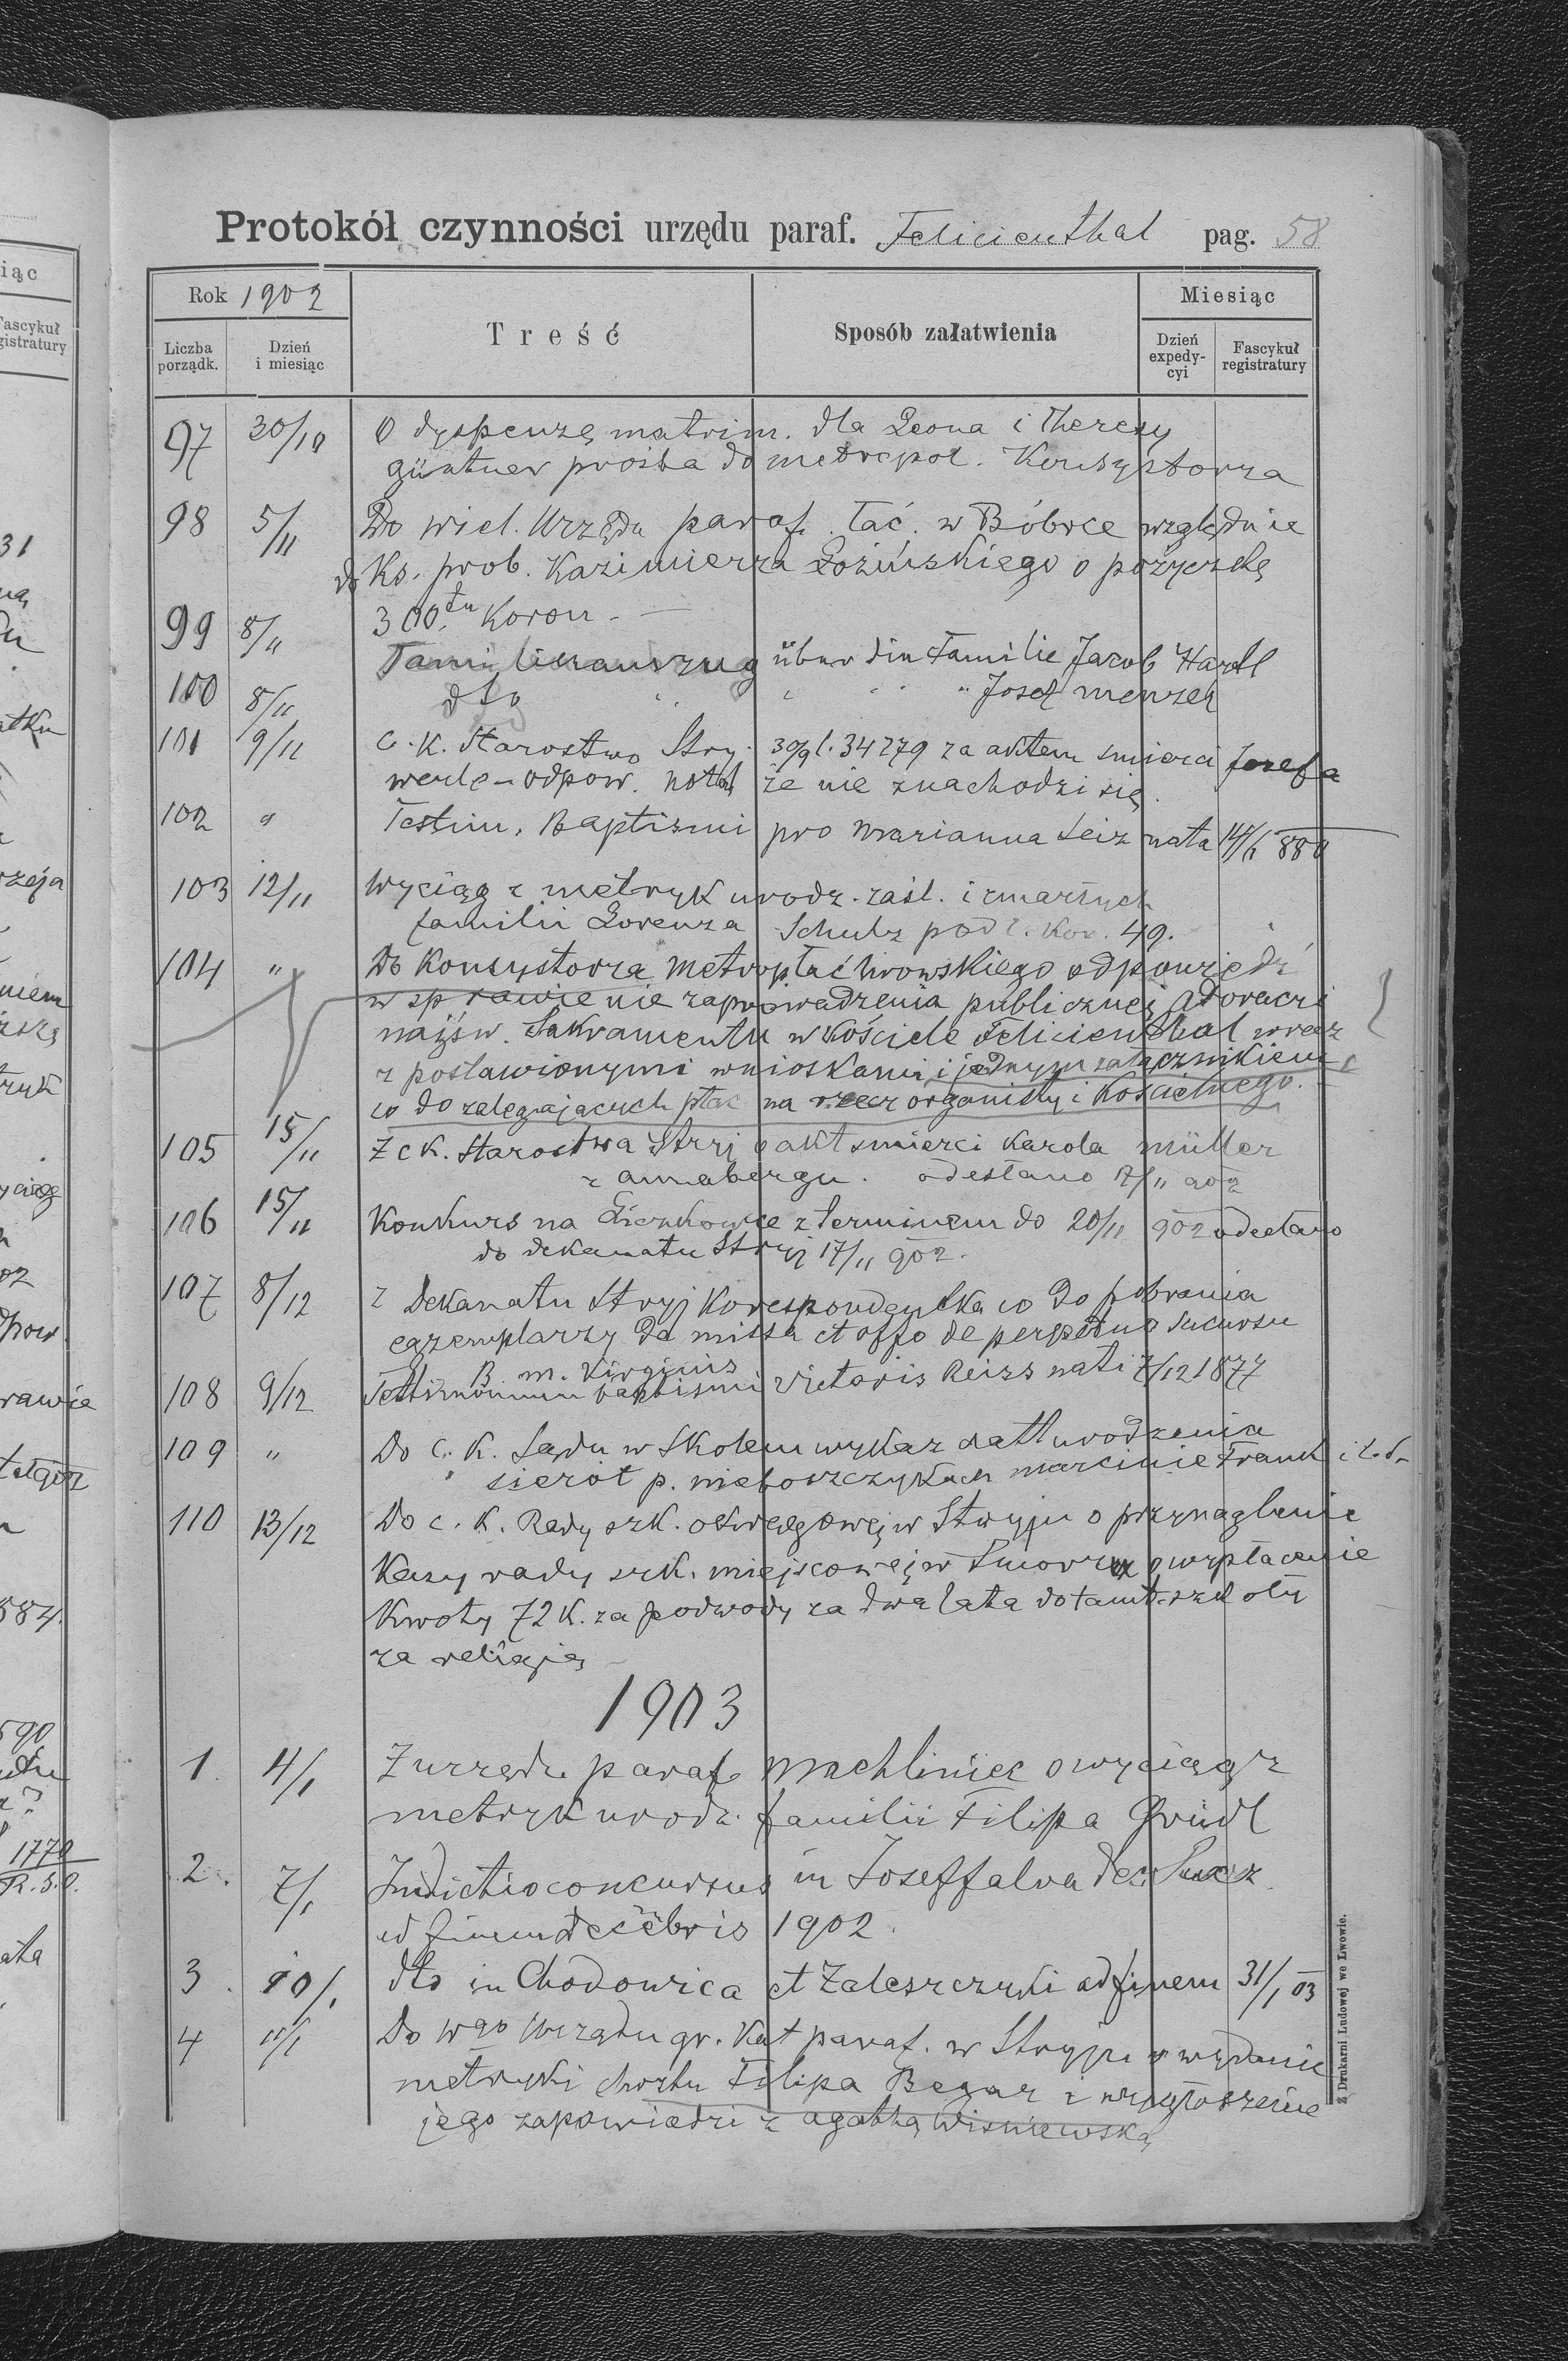 Protokół czynności urzędu paraf. Felicienthal pag. 58
Rok 1902
Treść
Sposób załatwienia
Miesiąc
Liczba porządk.
Dzień i miesiąc
Dzień expedy-cyi
Fascykuł registratury
97 30/10 O dyspenzę matrim. dla Leona i Theresy
Güntner prośba do metropol. Konsystorza
98 5/11 Do wiel. Urzędu paraf. łać. w Bóbrce względnie
do Ks. prob. Kazimierza Łozińskiego o pożyczkę
300.tu Koron. —
99 8/11 Familienauszug über die Familie Jacob Hartl
100 8/11 dto " " " " Josef Menzel
101 9/11 C. K. Starostwo Stry. 30/9 l. 34279 za aktem smierci Josefa
Werle - odpow. że nie znachodzi się.
102 " Testim. Baptismi pro Marianna Seiz nata 14/1 880
103 12/11 Wyciąg z metryk urodz. zaśl. i zmarłych
familii Lorenza Schulz pod l. Kon. 49.
104 " Do Konsystorza Metrop łać lwowskiego odpowiedź
w sprawie nie zaprowadzenia publicznej Adoracji
najśw. Sakramentu w Kościele Felicienthal wraz
z postawionymi wnioskami i jednym załącznikiem
co do zalegających płac na rzecz organisty i Kościelnego.
105 15/11 Z c K. Starostwa Stryj o akt smierci Karola Müller
z Annabergu. odesłano 17/11 902
106 15/11 Konkurs na z terminem do 20/11 902 odesłano
do dekanatu Stryj 17/11 902.
107 8/12 Z Dekanatu Stryj Korespondentka co do pobrania
egzemplarzy da missa et offo de perpetuo Sucursu
B. M. Virginis
108 9/12 Testimonium baptismi Victoris Reiss nati 7/12 1877
109 " Do C. K. Sądu w Skolem wykaz datt urodzenia
sierót p. nieboszczykach Marcinie Frank i
110 13/12 Do c. K. Rady szk. okręgowej w Stryju o przynaglenie
Kasy rady szk. miejscowej w Smorzu o wypłacenie
Kwoty 72 K. za podwody za dwa lata do tamt. szkoły
za religią —
1903
1. 4/1 Z urzędu paraf. Machliniec o wyciąg z
metryk urodz. familii Filipa Gridl
2. 7/1 Indictio concursus in Joseffalva dec.
ad finem decebris 1902.
3. 10/1 dto in Chodowica et Zaleszczyki ad finem 31/1 03
4 11/1 Do Wgo Urzędu gr. Kat paraf. w Stryju o wydanie
metryki chrztu Filipa Begar i wygłoszenie
jego zapowiedzi z Agathą Wisniewską
Z Drukarni Ludowej we Lwowie.